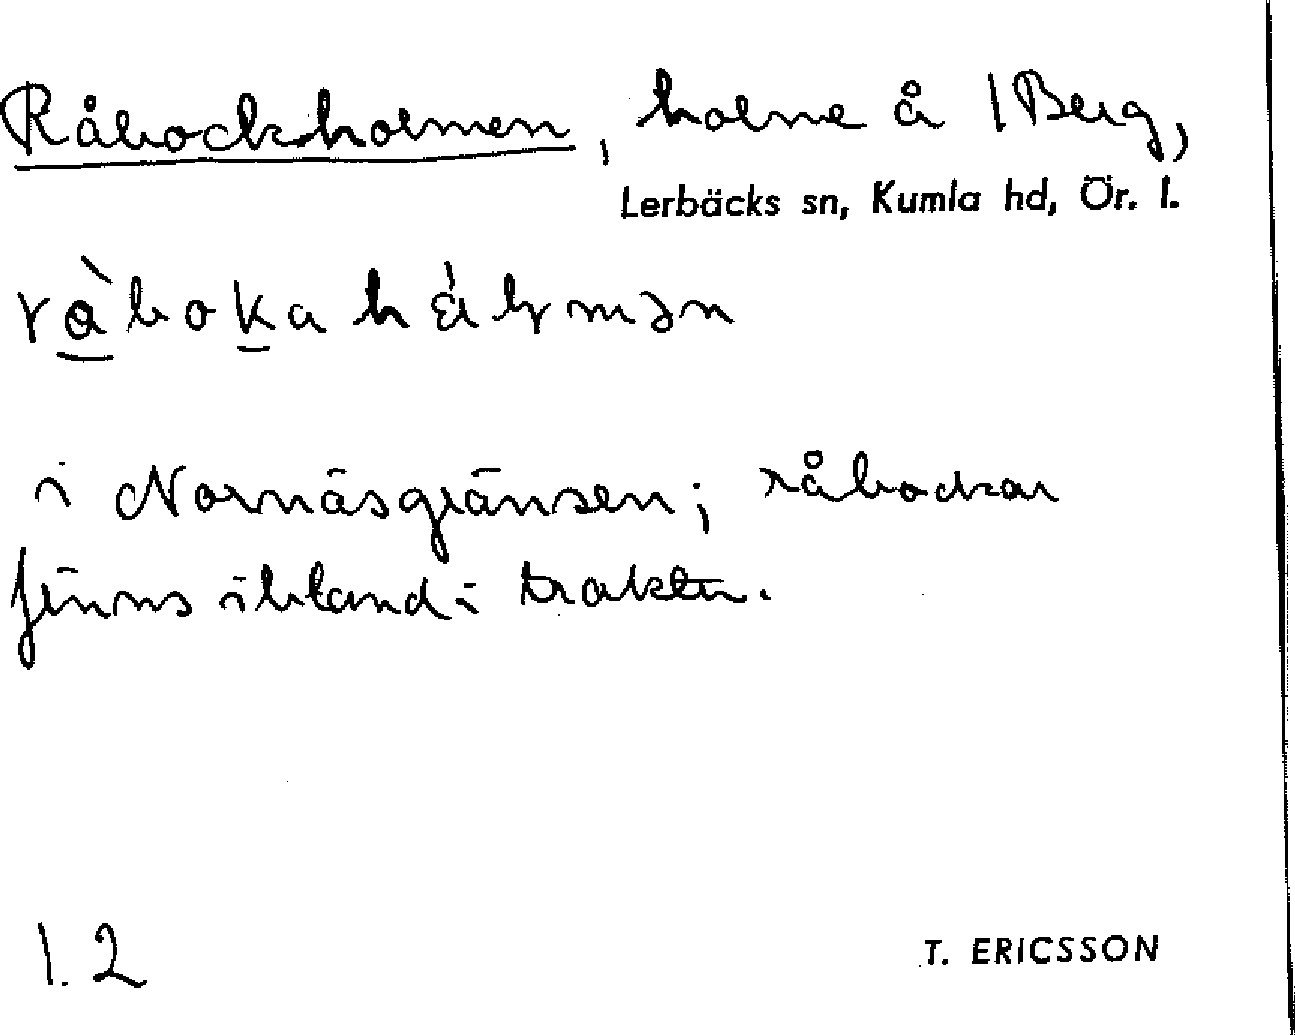 Råbockholmen, holme å 1 Berg,
Lerbäcks sn, Kumla hd, Ör. l.
råbokahålmən
i Nornäsgränsen; råbockar
finns ibland i trakten.
1.2
T. ERICSSON